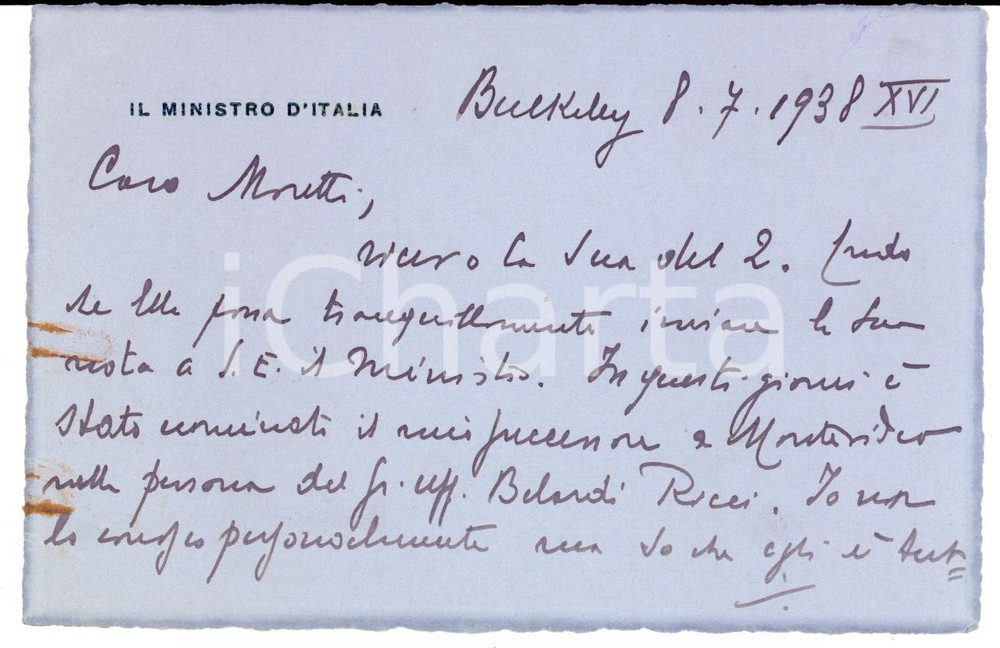 IL MINISTRO D'ITALIA
Bulkeley 8.7.1938 XVI
Caro Moretti,
ricevo la Sua del 2. Credo
se Ella possa tranquillamente inviare la Sua
nota a S.E. il Ministro. In questi giorni è
stato nominato il mio successore a Montevideo
nella persona del Gr. Uff. Belardi Ricci. Io non
lo conosco personalmente ma so che egli è tut=
iCharta